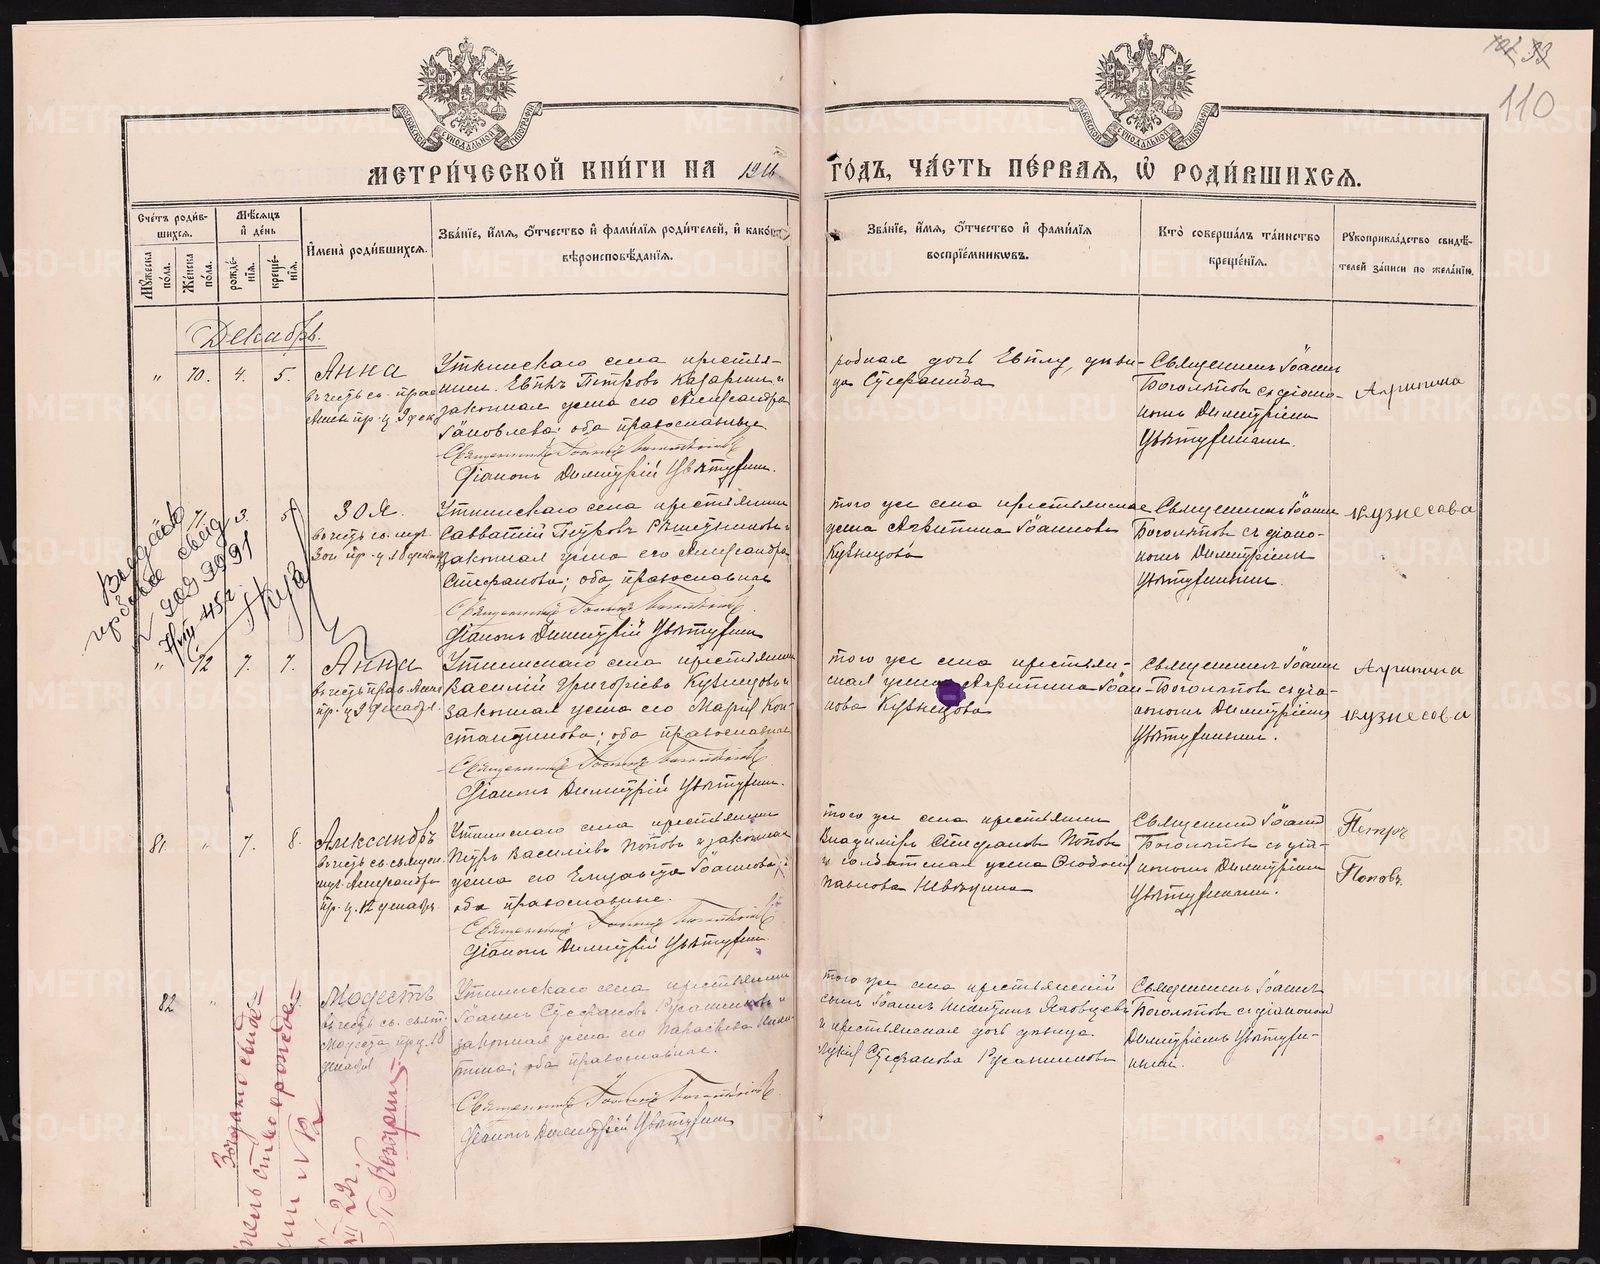 110
МЕТРИ́ЧЕСКОЙ КНИ́ГИ НА 1916
ГО́ДЪ, ЧА́СТЬ ПЕ́РВАЯ, Ѡ҆ РОДИ́ВШИХСЯ.
Сче́тъ роди́в-
шихся.
Мѣ́сяцъ
и҆ де́нь
Мꙋ́жеска по́ла.
Же́нска по́ла.
рожде́-
нїѧ.
креще́-
нїѧ.
И҆мена̀ роди́вшихсѧ.
Зва́нїе, и҆́мѧ, ѻ҆́тчество и҆ фамѝлїѧ роди́телей, и҆ како́гѡ
вѣроисповѣ́данїѧ.
Зва́нїе, и҆́мѧ, ѻ҆́тчество и҆ фами́лїѧ
воспрїе́мникѡвъ.
Кто̀ соверша́лъ та́инство
креще́нїѧ.
Рꙋкоприкла́дство свидѣ́-
телей за́писи по жела́нїю.
Декабрь.
" 70. 4. 5. Анна
въ честь св. прав.
Анны пр. ц. 9 дек.
Уткинскаго села крестья-
нинъ Евтихъ Петровъ Казаринъ и
законная жена его Александра
Іаковлева, оба православные
Священникъ Іоаннъ Боголѣповъ
Діаконъ Димитрій Цвѣтухинъ.
родная дочь Евтиха, дѣви-
ца Стефанида
Священникъ Іоаннъ
Боголѣповъ съ діако-
номъ Димитріемъ
Цвѣтухинымъ.
Агрипина
71 3. 5 Зоя.
въ честь св. муч.
Зои пр. ц. 18 декабря
Уткинскаго села крестьянинъ
Савватій Петровъ Рѣшетниковъ и
законная жена его Александра
Стефанова; оба православные
Священникъ Іоаннъ Боголѣповъ
Діаконъ Димитрій Цвѣтухинъ
того же села крестьянская
жена Агрипина Іоаннова
Кузнецова
Священникъ Іоаннъ
Боголѣповъ съ діако-
номъ Димитріемъ
Цвѣтухинымъ.
Кузнесова
" 72 7. 7. Анна
въ честь прав. Анны
пр. ц. 9 декабря.
Уткинскаго села крестьянинъ
Василій Григоріевъ Кузнецовъ и
законная жена его Марія Кон-
стантинова; оба православные
Священникъ Іоаннъ Боголѣповъ
Діаконъ Димитрій Цвѣтухинъ.
того же села крестьян-
ская жена Агрипина Іоан-
нова Кузнецова
Священникъ Іоаннъ
Боголѣповъ съ діа-
кономъ Димитріемъ
Цвѣтухинымъ.
Агрипина
Кузнесова
81. " 7. 8. Александръ
въ честь св. священ.
муч. Александра
пр. ц. 12 декабря
Уткинскаго села крестьянинъ
Петръ Василіевъ Поповъ и законная
жена его Елизавета Іоаннова;
оба православные.
Священникъ Іоаннъ Боголѣповъ
Діаконъ Димитрій Цвѣтухинъ.
того же села крестьянинъ
Владиміръ Стефановъ Поповъ
и солдатская жена Ѳеодосія
Павлова
Священникъ Іоаннъ
Боголѣповъ съ діа-
кономъ Димитріемъ
Цвѣтухинымъ.
Петръ
Поповъ.
82 " Модестъ
въ честь св. свят.
Модеста пр. ц. 18
декабря
Уткинскаго села крестьянинъ
Іоаннъ Стефановъ Русаниковъ и
законная жена его Параскева Ники-
тина; оба православные.
Священникъ Іоаннъ Боголѣповъ
Діаконъ Димитрій Цвѣтухинъ
того же села крестьянскій
сынъ Іоаннъ
и крестьянская дочь дѣвица
Стефанова Русаникова
Священникъ Іоаннъ
Боголѣповъ съ діакономъ
Димитріемъ Цвѣтухи-
нымъ.